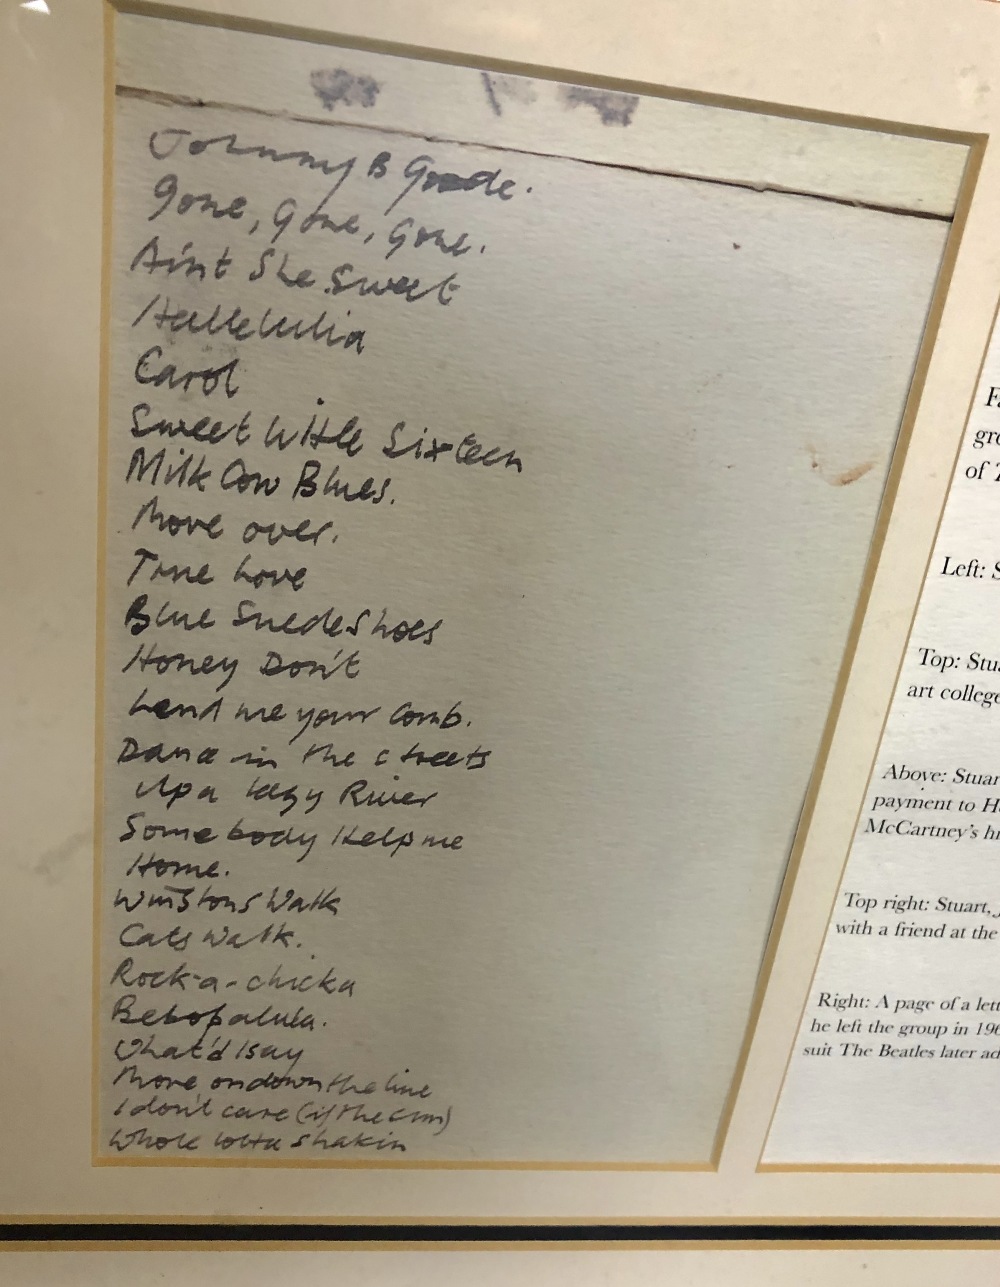 Johnny B Goode.
gone, gone, gone.
Ain't She Sweet
Hallelulia
Carol
Sweet little Sixteen
Milk Cow Blues.
Move over.
True Love
Blue Suede Shoes
Honey Don't
Lend me your Comb.
Dance in the streets
Up a lazy River
Somebody Help me
Home.
Winstons Walk
Cats Walk.
Rock-a-chicka
Bebopalula.
What'd I say
Move on down the line
I don't care (if the sun)
Whole lotta shakin
gro
of
Left: S
Top: Stua
art college
Above: Stuar
payment to H
McCartney's h
Top right: Stuart,
with a friend at the
Right: A page of a lett
he left the group in 196
suit The Beatles later ad